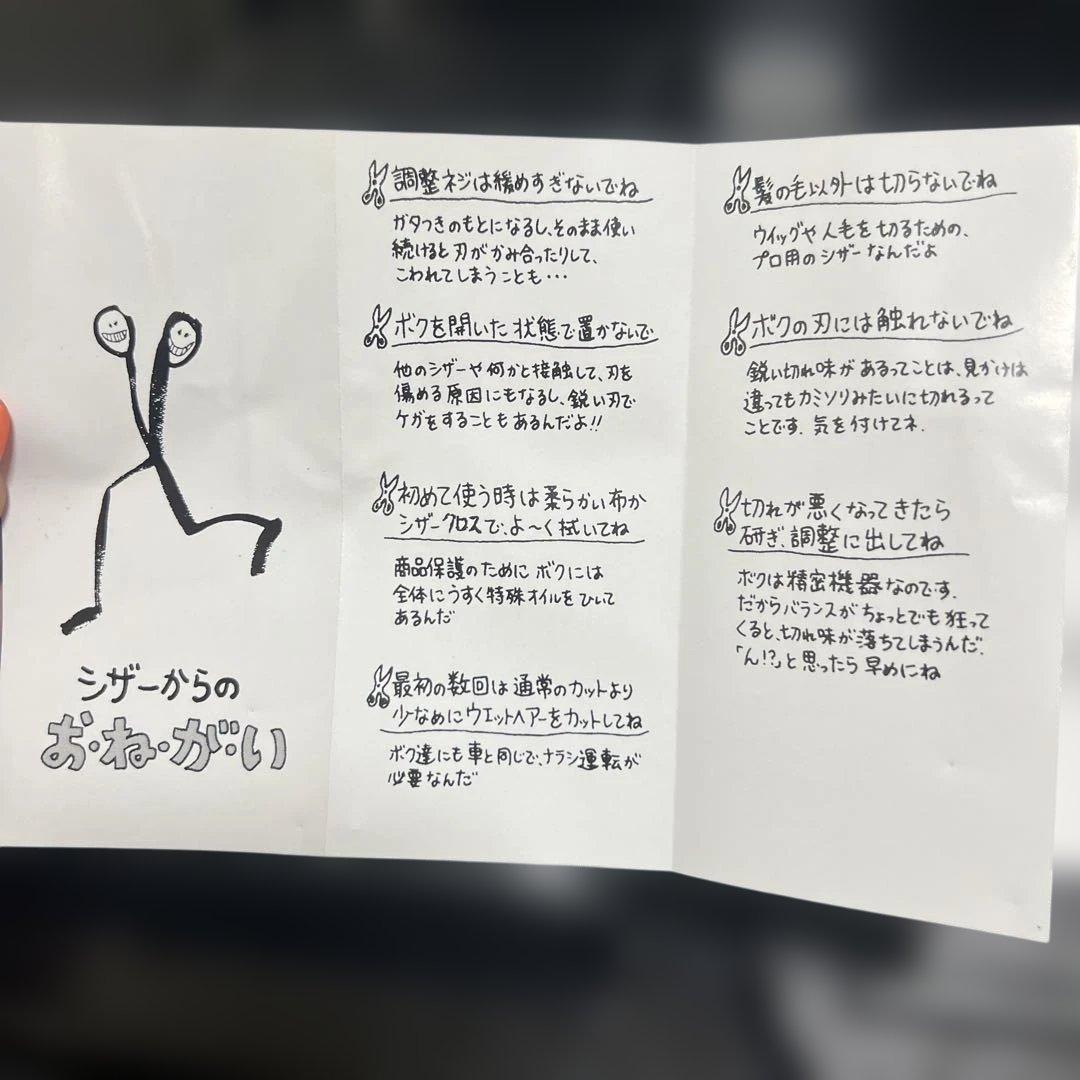 シザーからの
お・ね・が・い
調整ネジは緩めすぎないでね
ガタつきのもとになるし、そのまま使い
続けると刃がかみ合ったりして、
こわれてしまうことも・・・
ボクを開いた状態で置かないで
他のシザーや何かと接触して、刃を
傷める原因にもなるし、鋭い刃で
ケガをすることもあるんだよ!!
初めて使う時は柔らかい布か
シザークロスで、よ〜く拭いてね
商品保護のためにボクには
全体にうすく特殊オイルをひいて
あるんだ
最初の数回は通常のカットより
少なめにウエットヘアーをカットしてね
ボク達にも車と同じで、ナラシ運転が
必要なんだ
髪の毛以外は切らないでね
ウイッグや人毛を切るための、
プロ用のシザーなんだよ
ボクの刃には触れないでね
鋭い切れ味があるってことは、見かけは
違ってもカミソリみたいに切れるって
ことです。気を付けてネ。
切れが悪くなってきたら
研ぎ、調整に出してね
ボクは精密機器なのです。
だからバランスがちょっとでも狂って
くると、切れ味が落ちてしまうんだ。
「ん!?」と思ったら早めにね